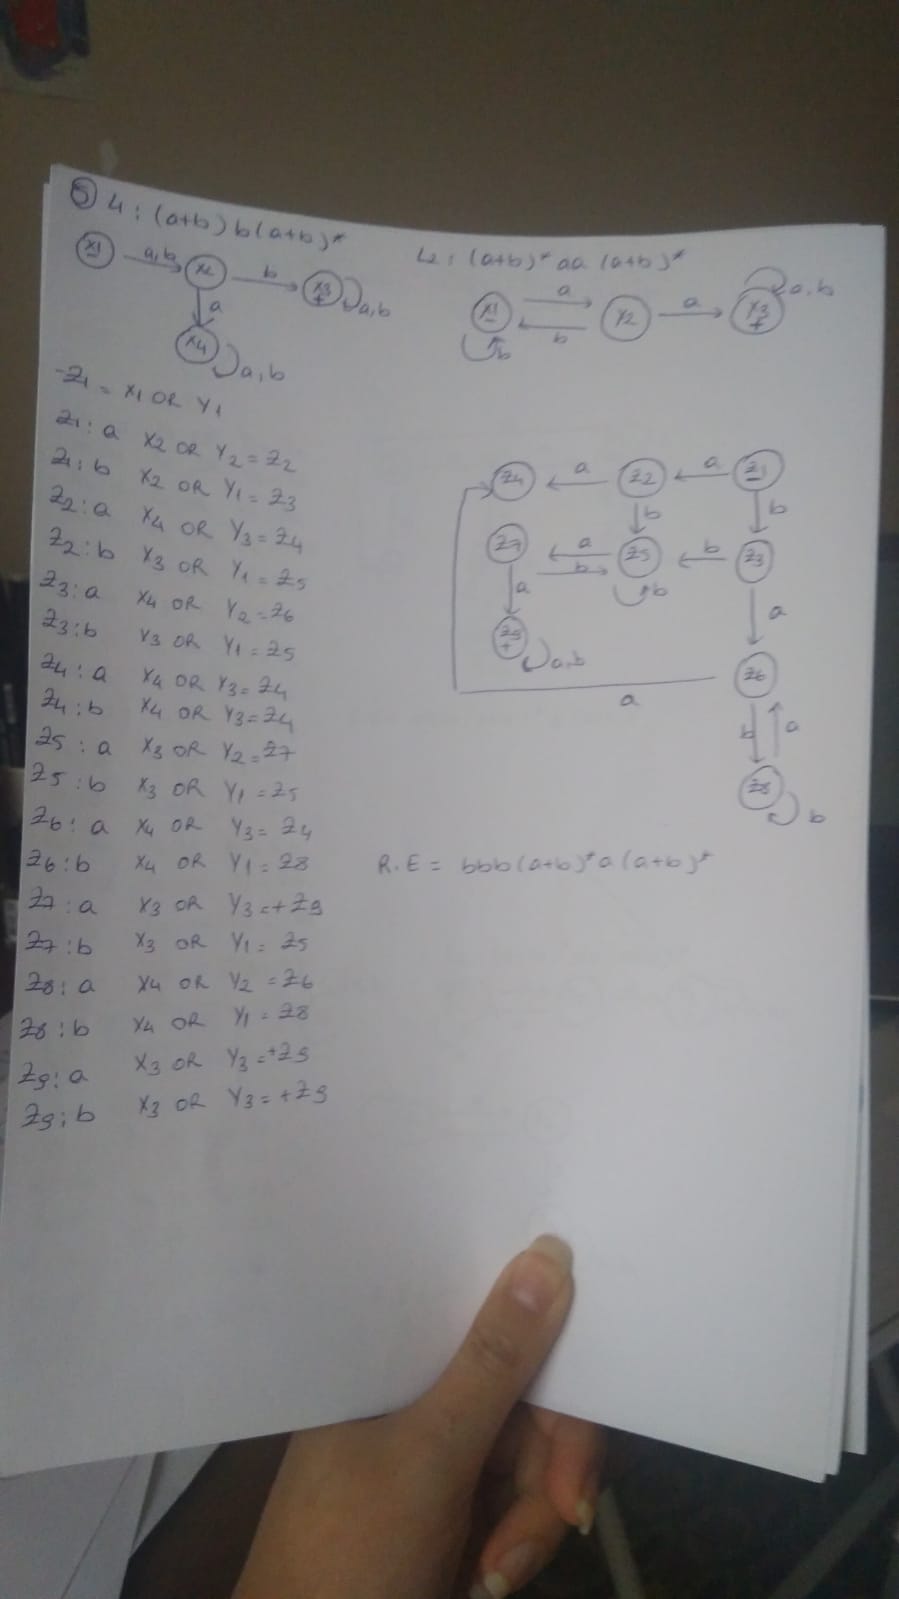 5 L1 : (a+b) b (a+b)*
x1 a,b x2 b x3 + a,b
a
x4 a,b
L2 : (a+b)* aa (a+b)*
x1 a x2 a x3 + a,b
b b
-Z1 = X1 OR Y1
Z1 : a X2 OR Y2 = Z2
Z1 : b X2 OR Y1 = Z3
Z2 : a X4 OR Y3 = Z4
Z2 : b X3 OR Y1 = Z5
Z3 : a X4 OR Y2 = Z6
Z3 : b X3 OR Y1 = Z5
Z4 : a X4 OR Y3 = Z4
Z4 : b X4 OR Y3 = Z4
Z5 : a X3 OR Y2 = Z7
Z5 : b X3 OR Y1 = Z5
Z6 : a X4 OR Y3 = Z4
Z6 : b X4 OR Y1 = Z8
Z7 : a X3 OR Y3 = +Z9
Z7 : b X3 OR Y1 = Z5
Z8 : a X4 OR Y2 = Z6
Z8 : b X4 OR Y1 = Z8
Z9 : a X3 OR Y3 = +Z9
Z9 : b X3 OR Y3 = +Z9
Z4 a Z2 a Z1
b b
Z7 a b Z5 b Z3
a b a
Z9 + a,b
Z6
a
b a
Z8 b
R.E = bbb(a+b)*a(a+b)*